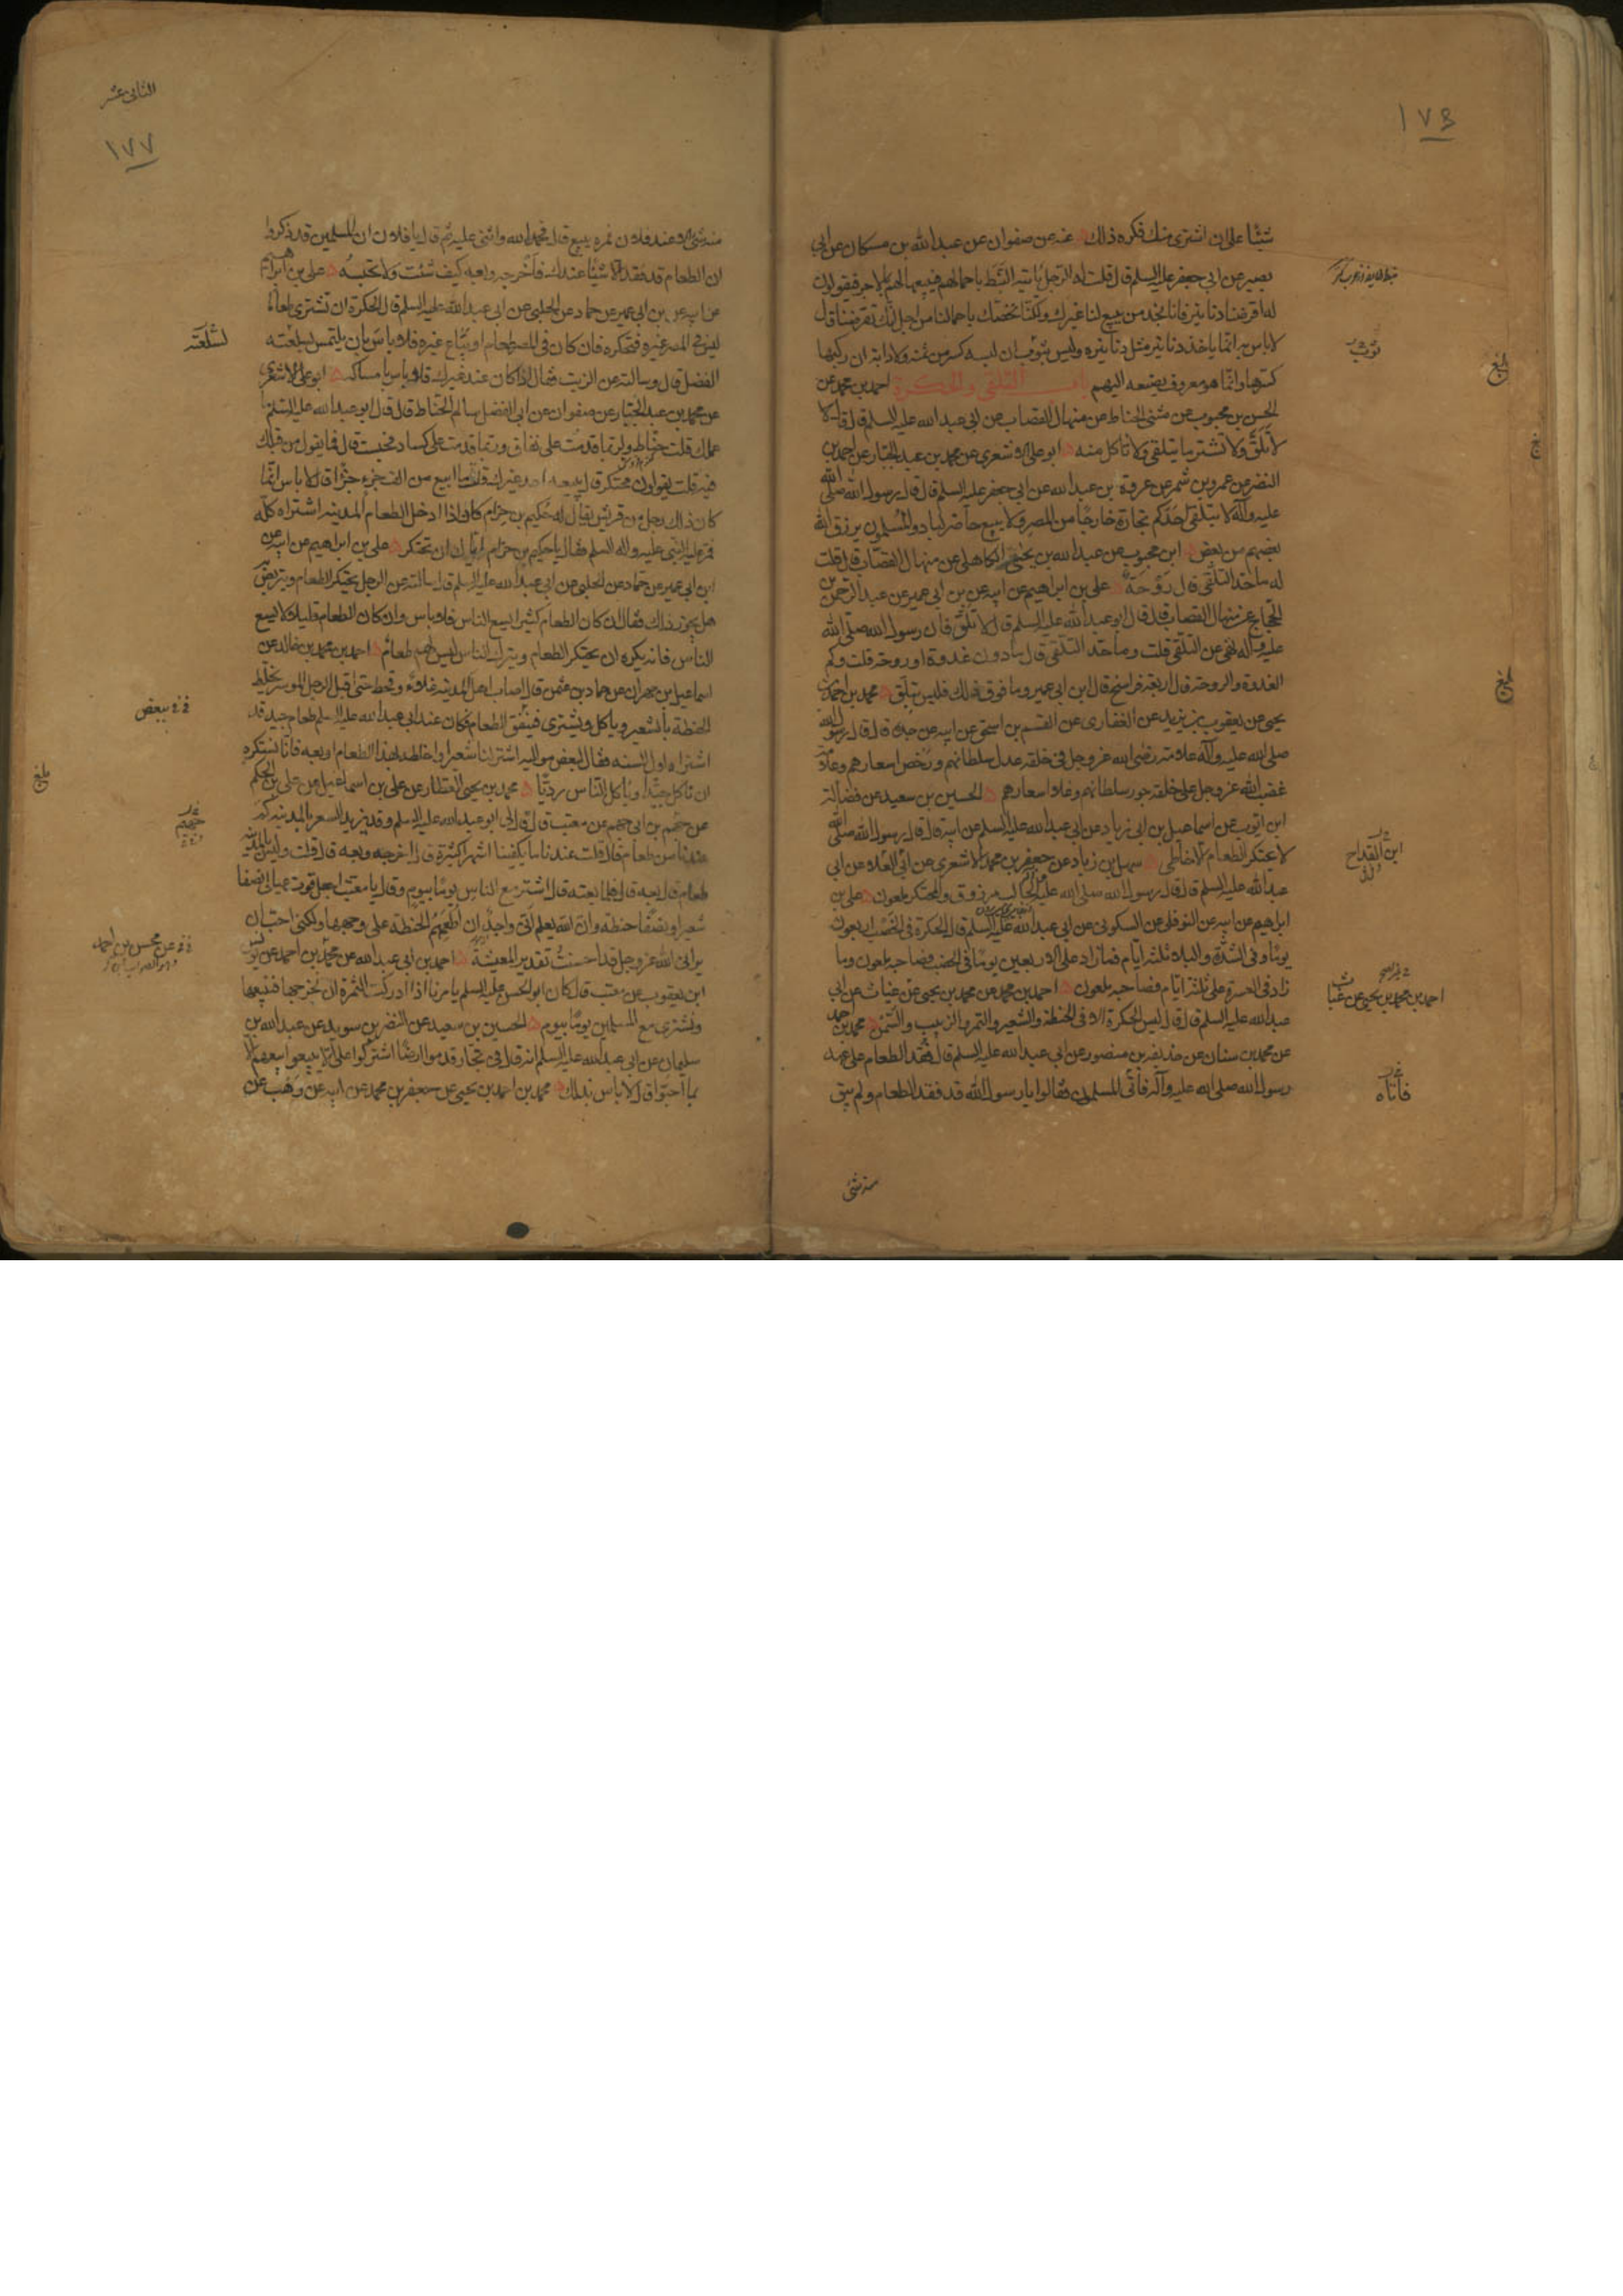 ١٧٦
شيئا على ان اشترى منك فكره ذلك عنه عن صفوان عن عبد الله بن مسكان عن ابي
بصير عن ابي جعفر عليه السلم قال قلت له الرجل ياتيه النبط باحمالهم فيبيعها لهم بالاجر فيقولون
له اقرضنا دنانير فانا نجد من يبيع لنا غيرك ولكنا نخصك باحمالنا من اجل انك تقرضنا قال
لا باس به انما ياخذ دنانير مثل دنانيره وليس بثوب ان لبسه كسر من ثمنه ولا دابة ان ركبها
كسرها وانما هو معروف يصنعه اليهم باب التلقي والحكرة احمد بن محمد عن
الحسن بن محبوب عن مثنى الحناط عن منهال القصاب عن ابي عبد الله عليه السلم قال قال لا
لا تلق ولا تشتر ما يتلقى ولا تاكل منه ابو علي الاشعري عن محمد بن عبد الجبار عن احمد بن
النضر عن عمرو بن شمر عن عروة بن عبد الله عن ابي جعفر عليه السلم قال قال رسول الله صلى الله
عليه وآله لا يتلقى احدكم تجارة خارجا من المصر ولا يبيع حاضر لباد والمسلمون يرزق الله
بعضهم من بعض ابن محبوب عن عبد الله بن يحيى الكاهلي عن منهال القصاب قال قلت
له ما حد التلقي قال روحة علي بن ابراهيم عن ابيه عن بن ابي عمير عن عبد الرحمن بن
الحجاج عن منهال القصاب قال قال ابو عبد الله عليه السلم قال لا تلق فان رسول الله صلى الله
عليه وآله نهى عن التلقي قلت وما حد التلقي قال ما دون غدوة او روحة قلت وكم
الغدوة والروحة قال اربعة فراسخ قال ابن ابي عمير وما فوق ذلك فليس بتلق محمد بن احمد بن
يحيى عن يعقوب بن يزيد عن الغفارى عن القسم بن اسحق عن ابيه عن جده قال قال رسول الله
صلى الله عليه وآله علامة رضى الله عز وجل في خلقه عدل سلطانهم ورخص اسعارهم وعلامة
غضب الله عز وجل على خلقه جور سلطانهم وغلا اسعارهم الحسين بن سعيد عن فضالة
ابن ايوب عن اسماعيل بن ابي زياد عن ابي عبد الله عليه السلم عن ابيه قال قال رسول الله صلى الله
لا يحتكر الطعام الا خاطى سهل بن زياد عن جعفر بن محمد الاشعرى عن ابن القداح عن ابي
عبد الله عليه السلم قال قال رسول الله صلى الله عليه وآله الجالب مرزوق والمحتكر ملعون علي بن
ابراهيم عن ابيه عن النوفلي عن السكوني عن ابي عبد الله عليه السلم قال الحكرة في الخصب اربعون
يوما وفي الشدة والبلاء ثلثة ايام فما زاد على الاربعين يوما في الخصب فصاحبه ملعون وما
زاد في العسرة على ثلثة ايام فصاحبه ملعون احمد بن محمد عن محمد بن يحيى عن غياث عن ابي
عبد الله عليه السلم قال قال ليس الحكرة الا في الحنطة والشعير والتمر والزبيب والسمن محمد بن احمد
عن محمد بن سنان عن حذيفة بن منصور عن ابي عبد الله عليه السلم قال فقد الطعام على عهد
رسول الله صلى الله عليه وآله فاتى المسلمون فقالوا يا رسول الله قد فقد الطعام ولم يبق
منه شئ
بثوب
بلغ
بلغ
ابن القداح
احمد بن محمد بن يحيى عن غياث
فاتاه
الثاني عشر
١٧٧
منه شئ الا وعند فلان فمره يبيع قال فحمد الله واثنى عليه ثم قال يا فلان ان المسلمين قد ذكروا
ان الطعام قد فقد الا شيئا عندك فاخرجه وبعه كيف شئت ولا تحبسه علي بن ابراهيم
عن ابيه عن بن ابي عمير عن حماد عن الحلبي عن ابي عبد الله عليه السلم قال الحكرة ان تشترى طعاما
ليس في المصر غيره فتحتكره فان كان في المصر طعام او يباع غيره فلا باس بان يلتمس بسلعته
الفضل قال وسالته عن الزيت فقال اذا كان عند غيرك فلا باس بامساكه ابو علي الاشعرى
عن محمد بن عبد الجبار عن صفوان عن ابي الفضل سالم الحناط قال قال ابو عبد الله عليه السلم ما
عملك قلت حناط وربما قدمت على نفاق وربما قدمت على كساد فحبست قال فما يقول من قبلك
فيه قلت يقولون محتكر قال يبيعه احد غيرك قلت ما ابيع من الف جزء جزءا قال لا باس انما
كان ذلك رجل من قريش يقال له حكيم بن حزام كان اذا دخل الطعام المدينه اشتراه كله
فمر عليه النبى عليه واله السلم فقال يا حكيم بن حزام اياك ان تحتكر علي بن ابراهيم عن ابيه عن
ابن ابي عمير عن حماد عن الحلبي عن ابي عبد الله عليه السلم قال سالته عن الرجل يحتكر الطعام ويتربص به
هل يجوز ذلك فقال ان كان الطعام كثيرا يسع الناس فلا باس وان كان الطعام قليلا لا يسع
الناس فانه يكره ان يحتكر الطعام ويترك الناس ليس لهم طعام احمد بن محمد بن خالد عن
اسماعيل بن مهران عن حماد بن عثمن قال اصاب اهل المدينه غلاء وقحط حتى اقبل الرجل الموسر يخلط
الحنطة بالشعير وياكل ويشترى فينفق الطعام فكان عند ابي عبد الله عليه السلم طعام جيد قد
اشتراه اول السنه فقال لبعض مواليه اشتر لنا شعيرا واخلطه بهذا الطعام او بعه فانا نستكره
ان ناكل جيدا وياكل الناس رديا محمد بن يحيى العطار عن علي بن اسماعيل عن علي بن الحكم
عن جهم بن ابي جهم عن معتب قال قال لى ابو عبد الله عليه السلم وقد يزيد السعر بالمدينه كم
عندنا من طعام قال قلت عندنا ما يكفينا اشهر كثيرة قال اخرجه وبعه قال قلت وليس بالمدينه
طعام قال بعه قال فلما بعته قال اشتر مع الناس يوما بيوم وقال يا معتب اجعل قوت عيالى نصفا
شعيرا ونصفا حنطه وان الله يعلم انى واجد ان اطعمهم الحنطة على وجهها ولكنى احب ان
يرانى الله عز وجل قد احسنت تقدير المعيشة احمد بن ابي عبد الله عن محمد بن احمد عن يونس
ابن يعقوب عن معتب قال كان ابو الحسن عليه السلم يامرنا اذا ادركت الثمرة ان نخرجها فنبيعها
ونشترى مع المسلمين يوما بيوم الحسين بن سعيد عن النضر بن سويد عن عبد الله بن
سليمان عن ابي عبد الله عليه السلم انه قال في تجار قدموا ارضا اشتركوا على الا يبيعوا بيعهم الا
بما احبوا قال لا باس بذلك محمد بن احمد بن يحيى عن جعفر بن محمد عن ابيه عن وهب عن
لسلعته
ببعض
بلغ
جهيم
عن محسن بن احمد